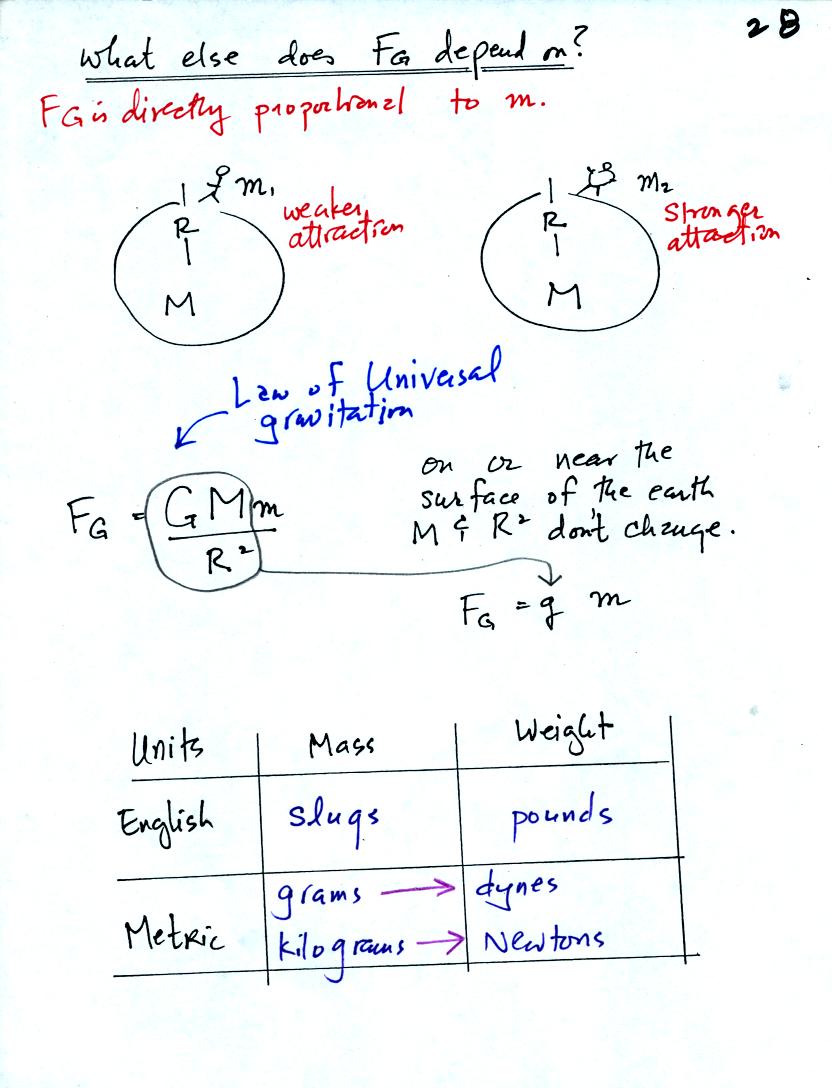 28
What else does FG depend on?
FG is directly proportional to m.
m1
weaker
attraction
R
M
m2
stronger
attraction
R
M
Law of Universal
gravitation
FG = GMm
R²
on or near the
surface of the earth
M & R² don't change.
FG = g m
Units Mass Weight
English slugs pounds
Metric
grams → dynes
kilograms → Newtons